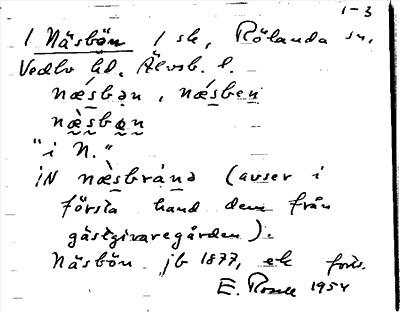 1-3
1 Näsbön 1 sk, Rölanda sn,
Vedbo hd. Älvsb. l.
næ´sbən, næ´sben
næ`sbən
"i N."
IN næ`sbrànə (avser i
första hand dem från
gästgivaregården).
Näsbön jb 1877, ek
E. 1954